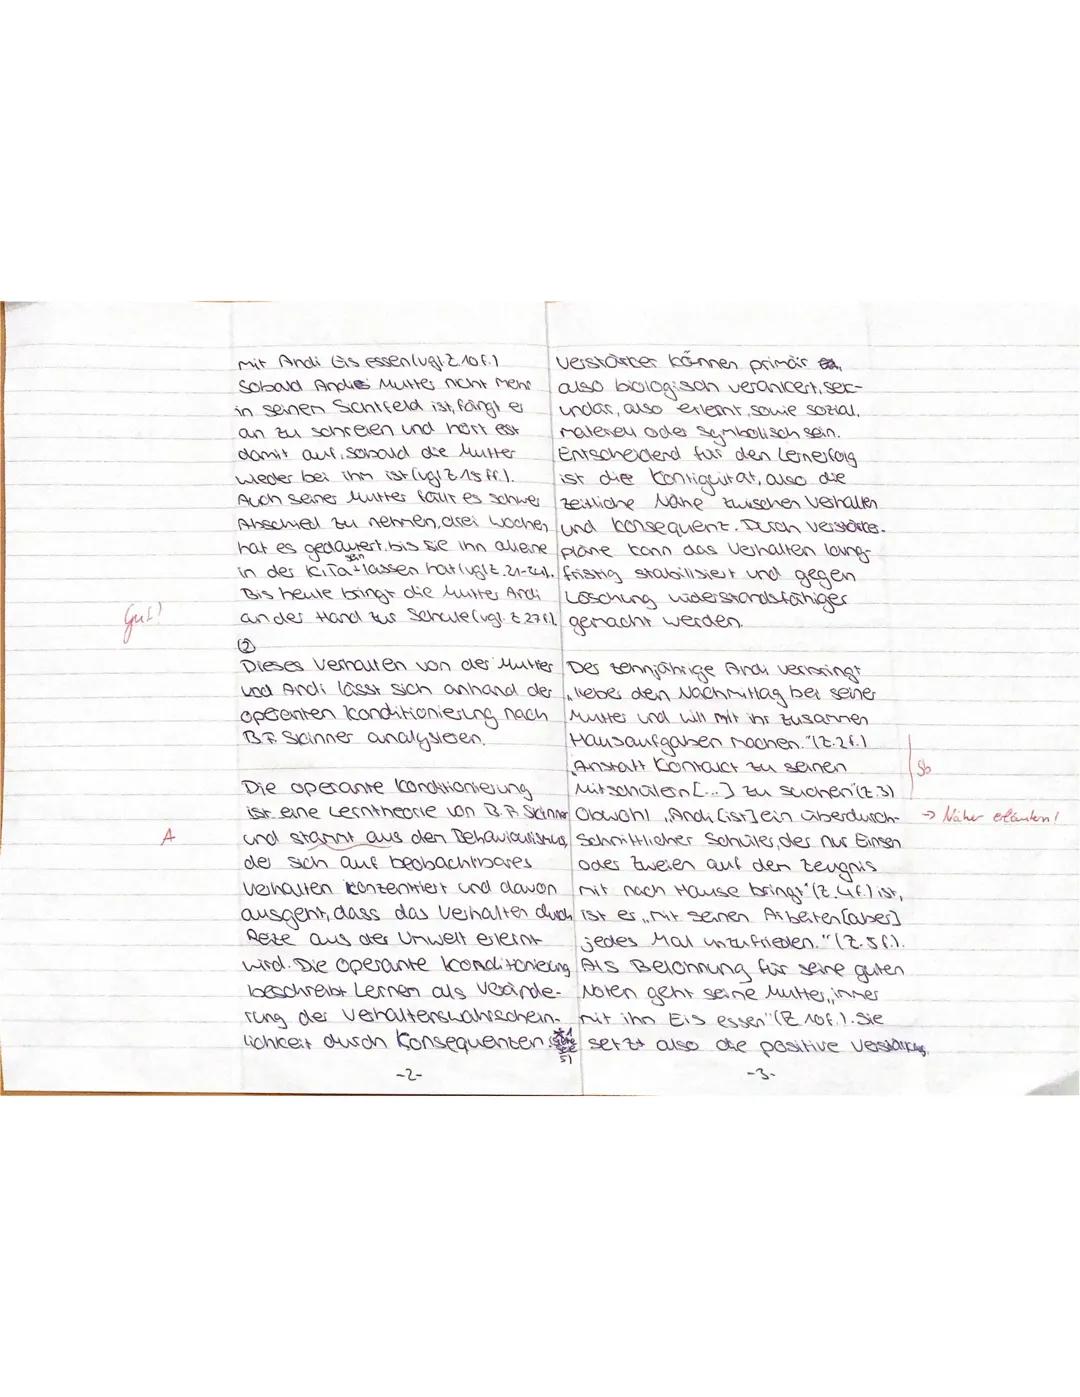 mit Andi Eis essen (vgl. Z. 10 f.)
Sobald Andis Mutter nicht mehr
in seinen Sichtfeld ist, fängt er
an zu schreien und hört erst
damit auf, sobald die Mutter
wieder bei ihm ist (vgl. Z 15 ff.).
Auch seiner Mutter fällt es schwer
Abschied zu nehmen, drei Wochen
hat es gedauert, bis sie ihn alleine
sein
in der KiTa lassen hat (vgl. Z. 21-24).
Bis heute bringt die Mutter Andi
an der Hand zur Schule (vgl. Z 27 f.).
Gut!
②
Dieses Verhalten von der Mutter
und Andi lässt sich anhand der
operanten Konditionierung nach
B.F. Skinner analysieren.
Die operante Konditionierung
ist eine Lerntheorie von B.F. Skinner
und stammt aus dem Behaviourismus,
A
der sich auf beobachtbares
Verhalten konzentriert und davon
ausgeht, dass das Verhalten durch
Reize aus der Umwelt erlernt
wird. Die operante Konditionierung
beschreibt Lernen als Verände-
rung der Verhaltenswahrschein-
lichkeit durch Konsequenzen.
*1
Siehe
S)
-2-
Verstärker können primär,
also biologisch verankert, sek-
undär, also erlernt, sowie sozial,
materiell oder symbolisch sein.
Entscheidend für den Lernerfolg
ist die Kontiguität, also die
zeitliche Nähe zwischen Verhalten
und Konsequenz. Durch Verstärker-
pläne kann das Verhalten lang-
fristig stabilisiert und gegen
Löschung widerstandsfähiger
gemacht werden.
Der zehnjährige Andi verbringt
„lieber den Nachmittag bei seiner
Mutter und will mit ihr zusammen
Hausaufgaben machen." (Z. 2 f.)
„Anstatt Kontakt zu seinen
Mitschülern [...] zu suchen" (Z. 3)
Sb
Obwohl „Andi [ist] ein überdurch-
→ Näher erläutern!
schnittlicher Schüler, der nur Einsen
oder Zweien auf den Zeugnis
mit nach Hause bringt" (Z. 4 f.) ist,
ist er „mit seinen Arbeiten [aber]
jedes Mal unzufrieden." (Z. 5 f.).
Als Belohnung für seine guten
Noten geht seine Mutter „immer
mit ihn Eis essen" (Z. 10 f.). Sie
setzt also die positive Verstärkung
-3-